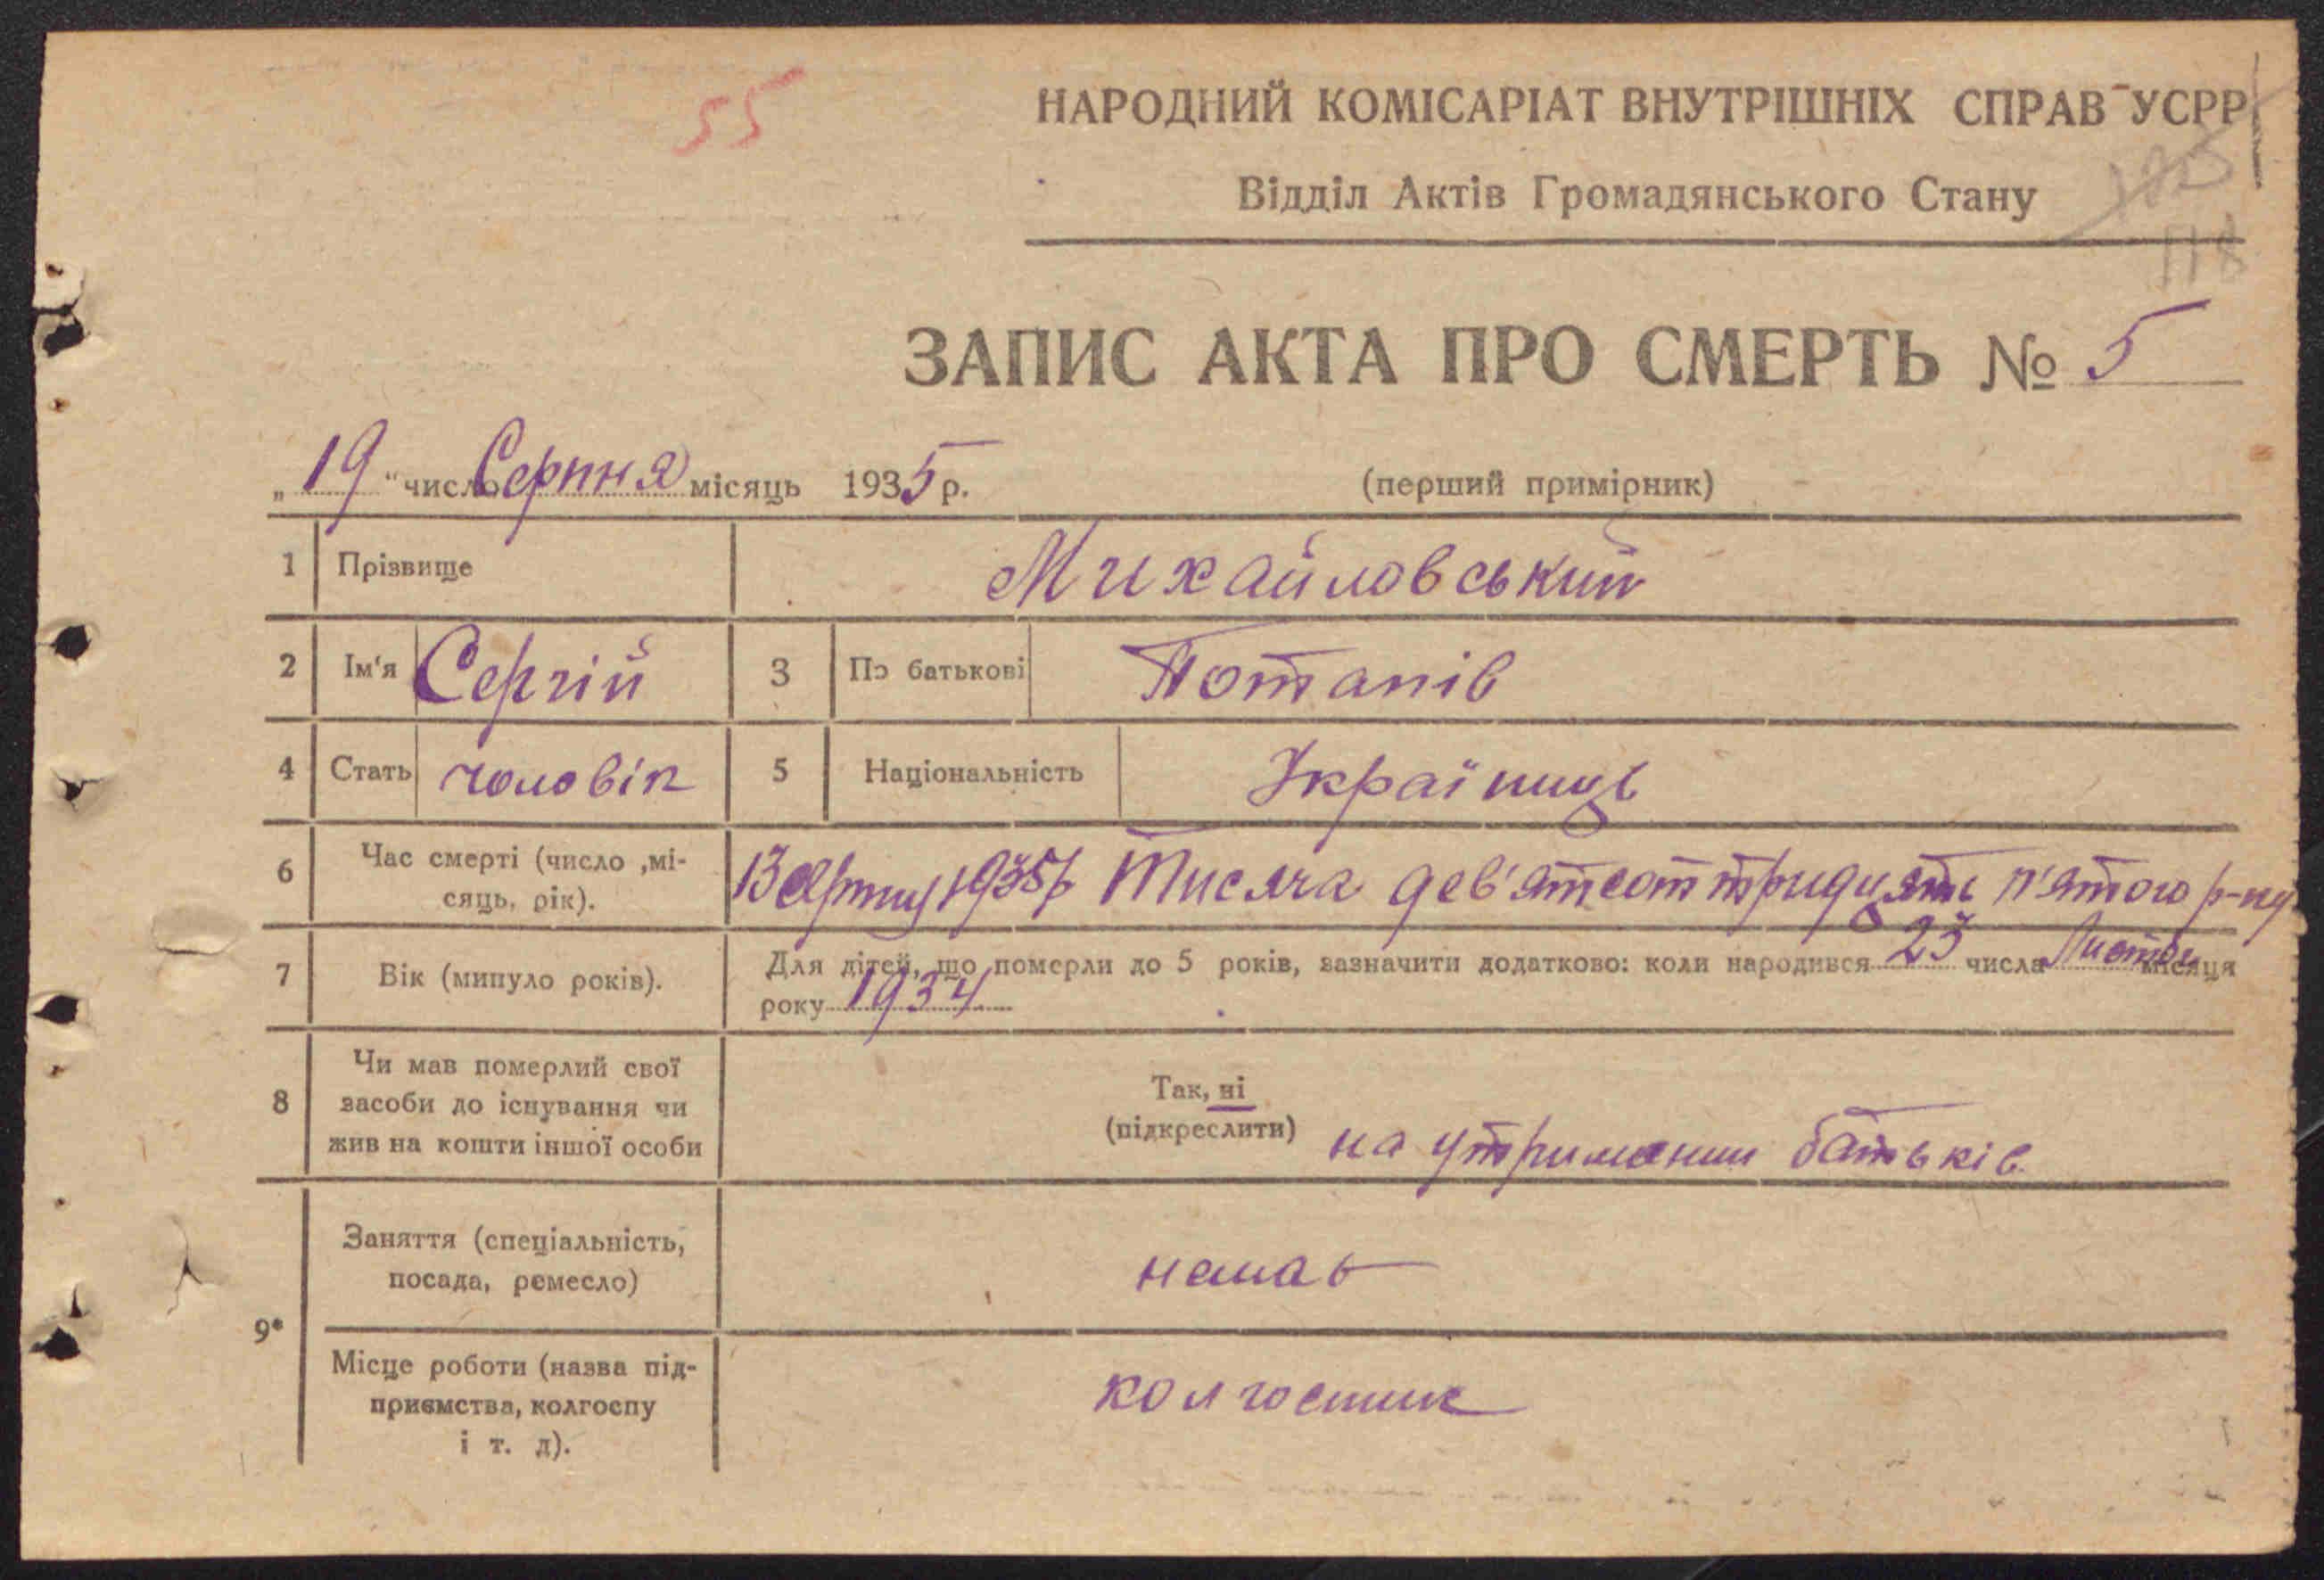 55
НАРОДНИЙ КОМІСАРІАТ ВНУТРІШНІХ СПРАВ УСРР
Відділ Актів Громадянського Стану
118
ЗАПИС АКТА ПРО СМЕРТЬ № 5
„19“ число Серпня місяць 1935 р. (перший примірник)
1 Прізвище Михайловський
2 Ім'я Сергій 3 По батькові Потапів
4 Стать чоловік 5 Національність Українець
6 Час смерті (число ,мі-
сяць, рік). 13 серпня 1935р Тисяча дев'ятсот тридцять п'ятого р-ку
7 Вік (минуло років). Для дітей, що померли до 5 років, зазначити додатково: коли народився 23 числа Листоп місяця
року 1934
8 Чи мав померлий свої
засоби до існування чи
жив на кошти іншої особи
Так, ні
(підкреслити) на утриманни батьків
9* Заняття (спеціальність,
посада, ремесло) немав
Місце роботи (назва під-
приємства, колгоспу
і т. д). колгоспник